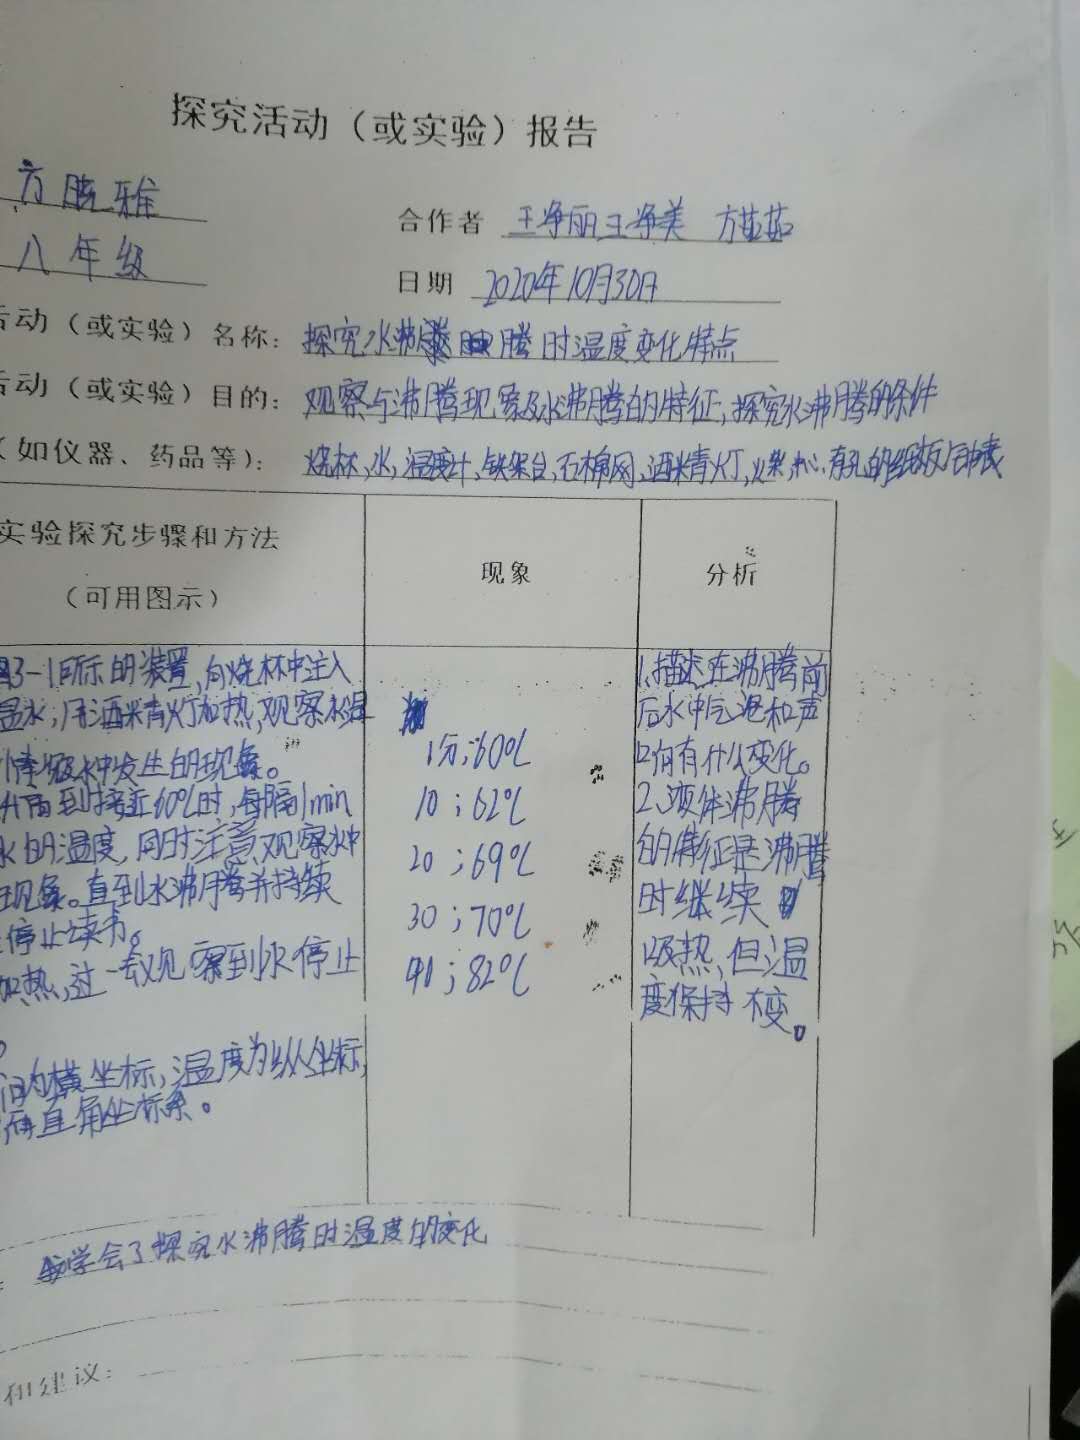 探究活动（或实验）报告
方晓雅
合作者 王净丽 王净美 方茹茹
八年级
日期 2020年10月30日
活动（或实验）名称：探究水沸腾时温度变化特点
活动（或实验）目的：观察与沸腾现象及水沸腾的特征，探究水沸腾的条件
（如仪器、药品等）：烧杯，水，温度计，铁架台，石棉网，酒精灯，火柴，中心有孔的纸板，钟表
实验探究步骤和方法
（可用图示）
现象
分析
3-1所示的装置，向烧杯中注入
温水，用酒精灯加热，观察水温
情况及水中发生的现象。
升高到接近60℃时，每隔1min
水的温度，同时注意观察水中
现象。直到水沸腾并持续
停止读书。
加热，过一会观察到水停止
为横坐标，温度为纵坐标，
直角坐标系。
1分；60℃
10；62℃
20；69℃
30；70℃
41；82℃
1、描述在沸腾前
后水中气泡和声
向有什么变化。
2、液体沸腾
的特征是沸腾
时继续
吸热，但温
度保持不变。
学会了探究水沸腾时温度的变化
和建议：